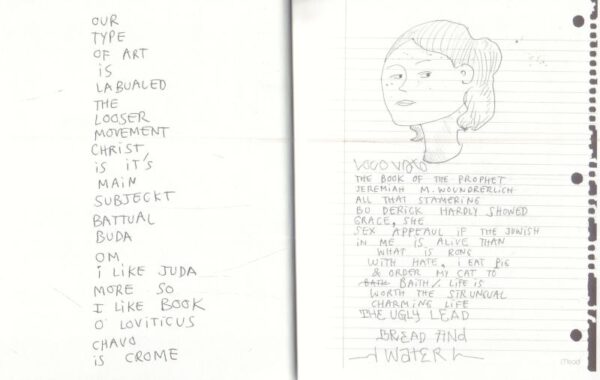 OUR
TYPE
OF ART
iS
LABUALED
THE
LOOSER
MOVEMENT
CHRIST,
is iT'S
MAiN
SUBJECKT
BATTUAL
BUDA
OM
i LiKE JUDA
MORE SO
I LiKE BOOK
O' LOViTiCUS
CHAVO
is CROME
THE BOOK OF THE PROPHET
JEREMIAH M. WOUNDRERLICH
ALL THAT STAMERING
BO DERICK HARDLY SHOWED
GRACE, SHE
SEX APPEAUL IF THE JUWISH
IN ME IS ALIVE THAN
WHAT IS RONG
WITH HATE. I EAT PIG
& ORDER MY CAT TO
BAITH/ LIFE IS
WORTH THE
CHARMING LIFE
THE UGLY LEAD
BREAD AND
WATER
Mead